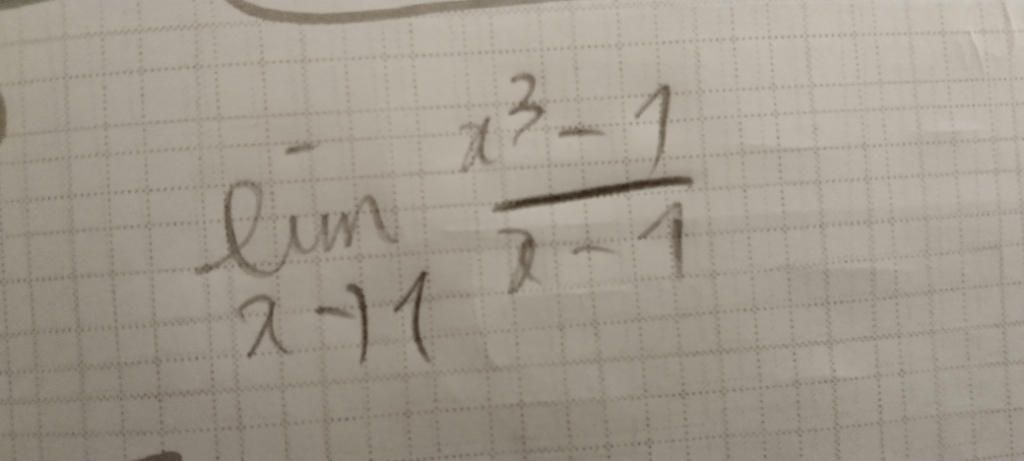 lim x³ - 1
x→1 x - 1